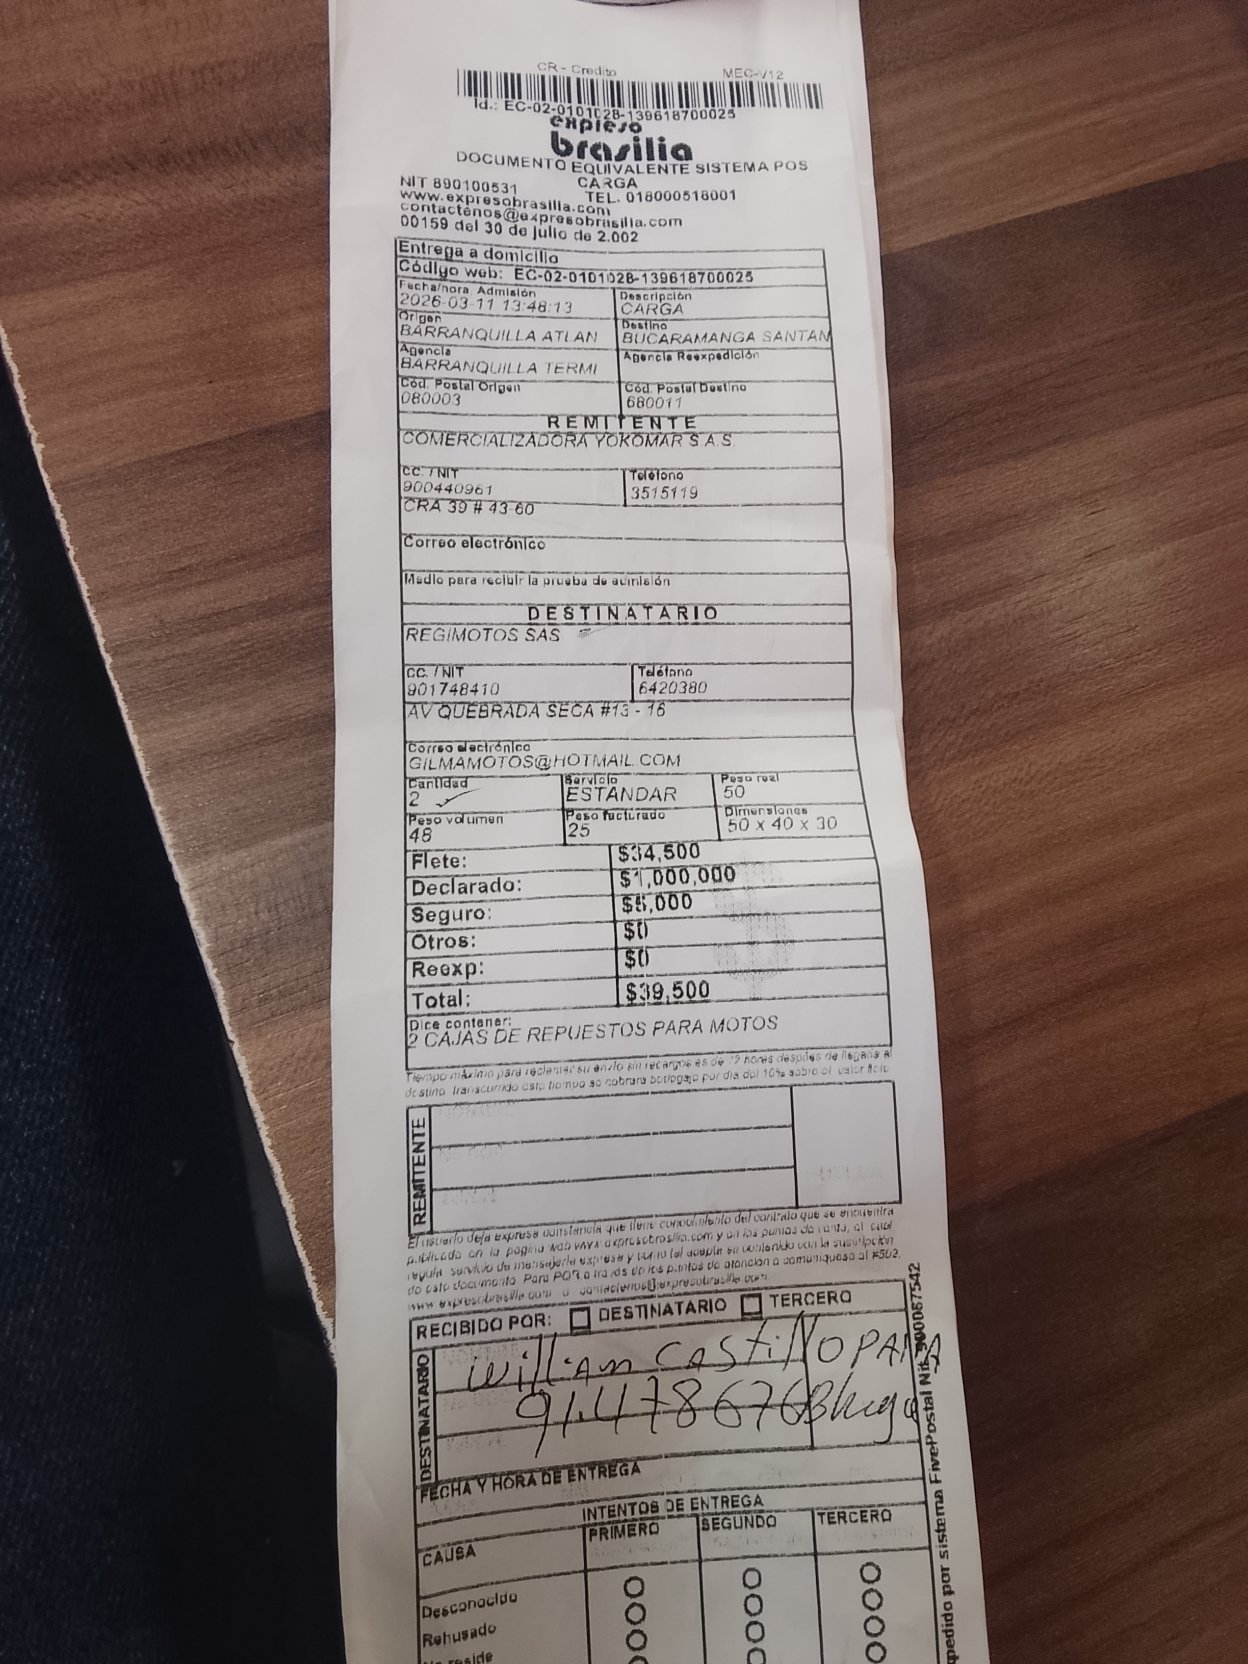 CR - Credito MEC-V12
Id.: EC-02-0101028-139618700025
expreso
brasilia
DOCUMENTO EQUIVALENTE SISTEMA POS
CARGA
NIT 890100531 TEL. 018000518001
www.expresobrasilia.com
contactenos@expresobrasilia.com
00159 del 30 de julio de 2.002
Entrega a domicilio
Código web: EC-02-0101028-139618700025
Fecha/hora. Admisión Descripción
2026-03-11 13:48:13 CARGA
Origen Destino
BARRANQUILLA ATLAN BUCARAMANGA SANTAN
Agencia Agencia Reexpedición
BARRANQUILLA TERMI
Cód. Postal Origen Cód. Postal Destino
080003 680011
REMITENTE
COMERCIALIZADORA YOKOMAR S.A.S.
CC. / NIT Teléfono
900440961 3515119
CRA 39 # 43-60
Correo electrónico
Medio para recibir la prueba de admisión
DESTINATARIO
REGIMOTOS SAS
CC. / NIT Teléfono
901748410 6420380
AV QUEBRADA SECA #13 - 16
Correo electrónico
GILMAMOTOS@HOTMAIL.COM
Cantidad Servicio Peso real
2 ESTANDAR 50
Peso volumen Peso facturado Dimensiones
48 25 50 x 40 x 30
Flete: $34,500
Declarado: $1,000,000
Seguro: $5,000
Otros: $0
Reexp: $0
Total: $39,500
Dice contener:
2 CAJAS DE REPUESTOS PARA MOTOS
Tiempo máximo para reclamar su envío sin recargos es de horas después de llegada al
destino, transcurrido este tiempo se cobrará bodegaje por día del 10% sobre el valor flete
REMITENTE
El usuario deja expresa constancia que tiene conocimiento del contrato que se encuentra
publicado en la página web www.expresobrasilia.com y en los puntos de venta, el cual
regula servicio de mensajería expresa y como tal acepta su contenido con la suscripción
de este documento. Para PQR a través de los puntos de atención o comuníquese al #502,
www.expresobrasilia.com o contactenos@expresobrasilia.com
RECIBIDO POR: DESTINATARIO TERCERO
DESTINATARIO
William CAStillo PARRA
91.478676 B/manga
FECHA Y HORA DE ENTREGA
INTENTOS DE ENTREGA
CAUSA PRIMERO SEGUNDO TERCERO
Desconocido
Rehusado
No reside
pedido por sistema FivePostal Nit. 900087542